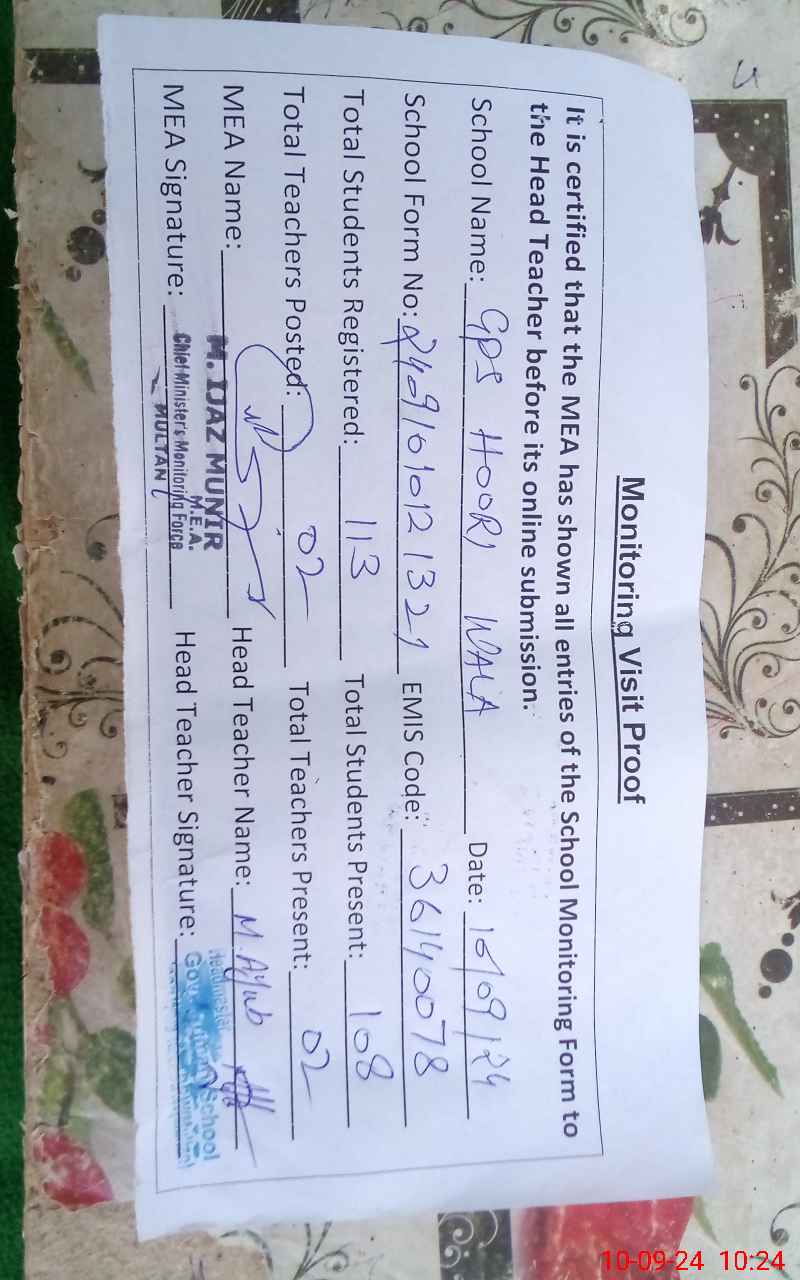 Monitoring Visit Proof
It is certified that the MEA has shown all entries of the School Monitoring Form to
the Head Teacher before its online submission.
School Name: GPS HOORI WALA Date: 10/09/24
School Form No: EMIS Code: 36140078
Total Students Registered: 113 Total Students Present: 108
Total Teachers Posted: 02 Total Teachers Present: 02
MEA Name: Head Teacher Name: M. Ayub
M. IJAZ MUNIR
M.E.A.
MEA Signature: Head Teacher Signature:
Chief Minister's Monitoring Force
MULTAN
School
10-09-24 10:24